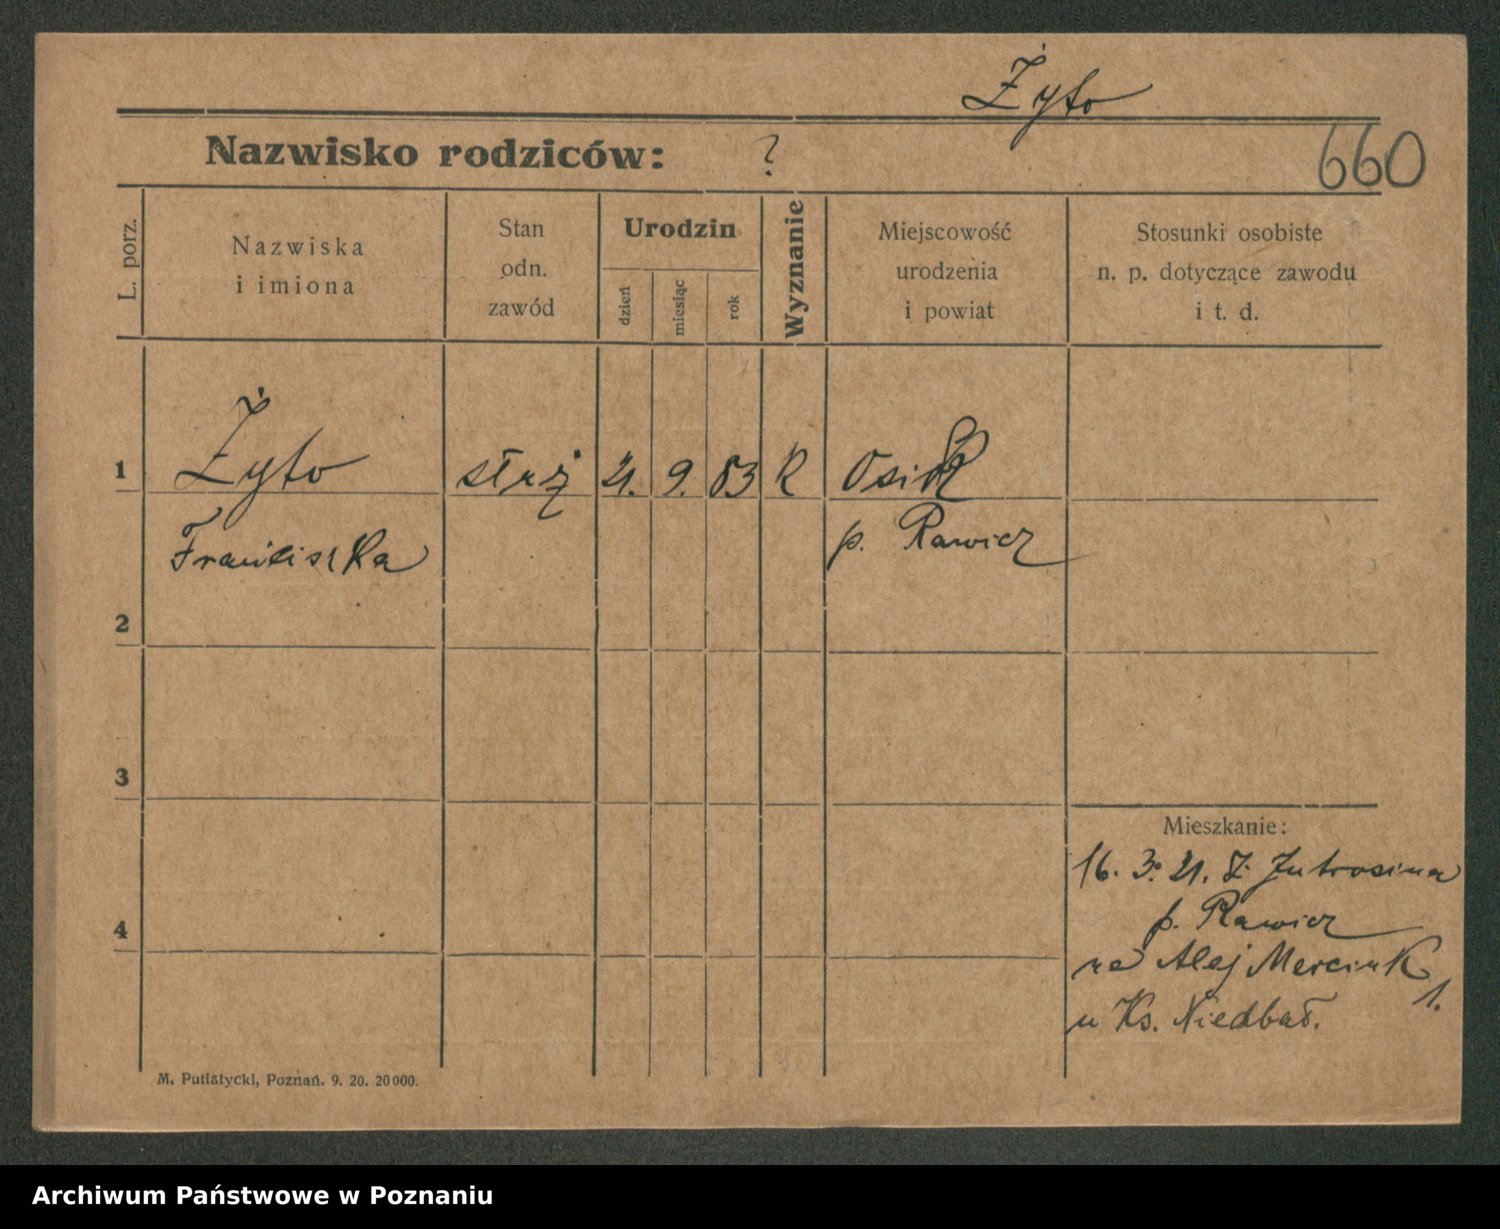 Żyto
Nazwisko rodziców: ?
660
L. porz.
Nazwiska
i imiona
Stan
odn.
zawód
Urodzin
dzień
miesiąc
rok
Wyznanie
Miejscowość
urodzenia
i powiat
Stosunki osobiste
n. p. dotyczące zawodu
i t. d.
1
Żyto
9. 83 R
Franciszka
p. Rawicz
2
3
4
Mieszkanie:
16. 3. 21. Z. Jutrosina
p. Rawicz
na Alej Marcink
1.
u Ks. Niedbał.
M. Putiatycki, Poznań. 9. 20. 20000.
Archiwum Państwowe w Poznaniu